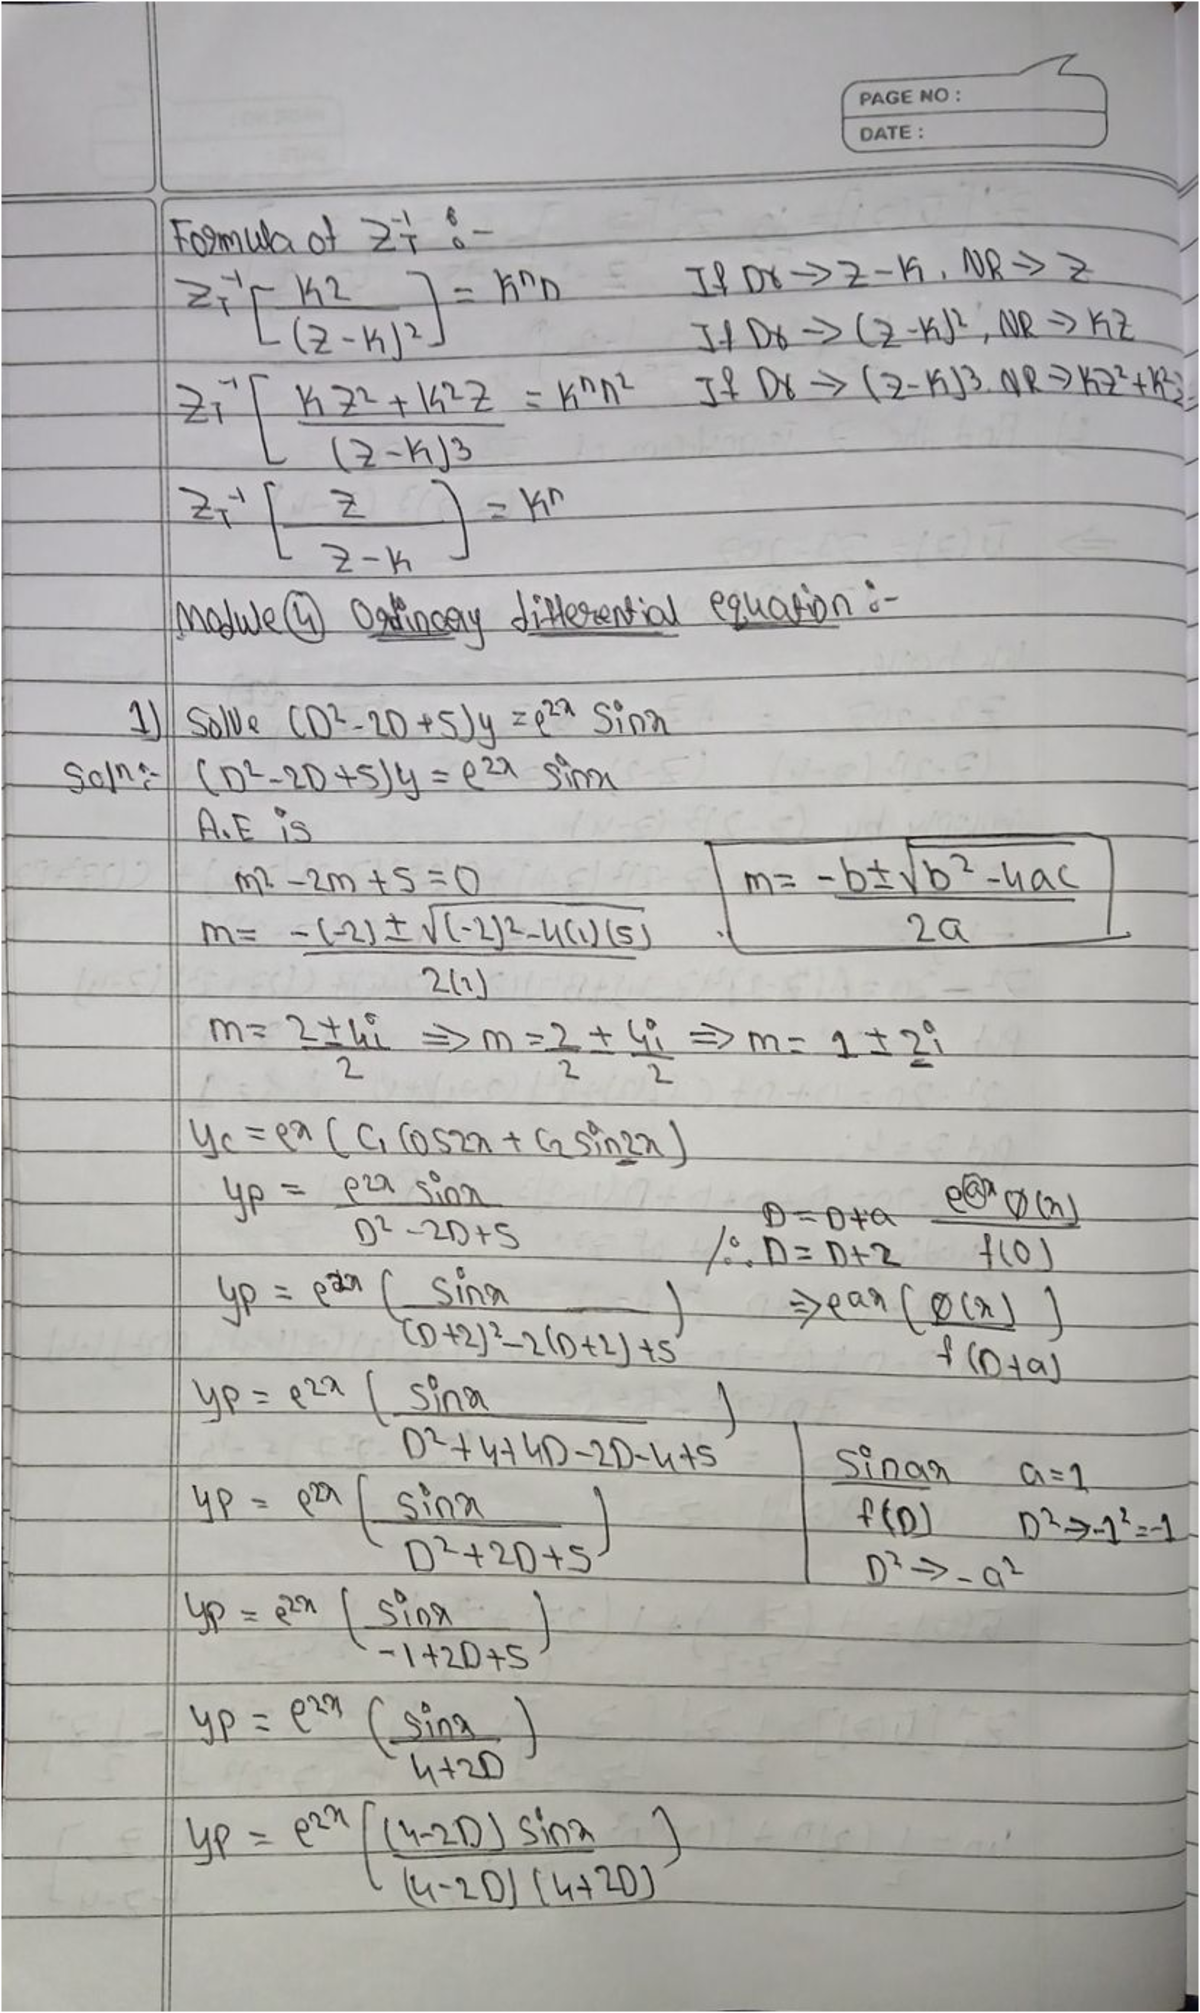 PAGE NO :
DATE :
Formula of Z_T^-1 :-
Z_T^-1 [ KZ / (Z-K)^2 ] = K^n n    If Dr -> Z-K, NR -> Z
If Dr -> (Z-K)^2, NR -> KZ
Z_T^-1 [ KZ^2 + K^2Z / (Z-K)^3 = K^n n^2    If Dr -> (Z-K)^3. NR -> KZ^2+K^2Z
Z_T^-1 [ Z / Z-K ] = K^n
Module (4) Ordinary differential equation :-
1) Solve (D^2-2D+5)y = e^2x Sinx
Soln:- (D^2-2D+5)y = e^2x sinx
A.E is
m^2 -2m+5=0    m = -b±√b^2-4ac / 2a
m = -(-2)±√(-2)^2-4(1)(5) / 2(1)
m = 2±4i / 2 => m = 2/2 ± 4i/2 => m = 1±2i
yc = e^x (C1 cos2x + C2 sin2x)
yp = e^2x sinx / D^2-2D+5    D = D+a    e^ax Ø(x) / f(D)
∴ D = D+2
yp = e^2x ( sinx / (D+2)^2-2(D+2)+5 )    => e^ax ( Ø(x) / f(D+a) )
yp = e^2x ( sinx / D^2+4+4D-2D-4+5 )
sinax / f(D)    a=1
D^2 -> -1^2 = -1
D^2 -> -a^2
yp = e^2x ( sinx / D^2+2D+5 )
yp = e^2x ( sinx / -1+2D+5 )
yp = e^2x ( sinx / 4+2D )
yp = e^2x ( (4-2D) sinx / (4-2D)(4+2D) )